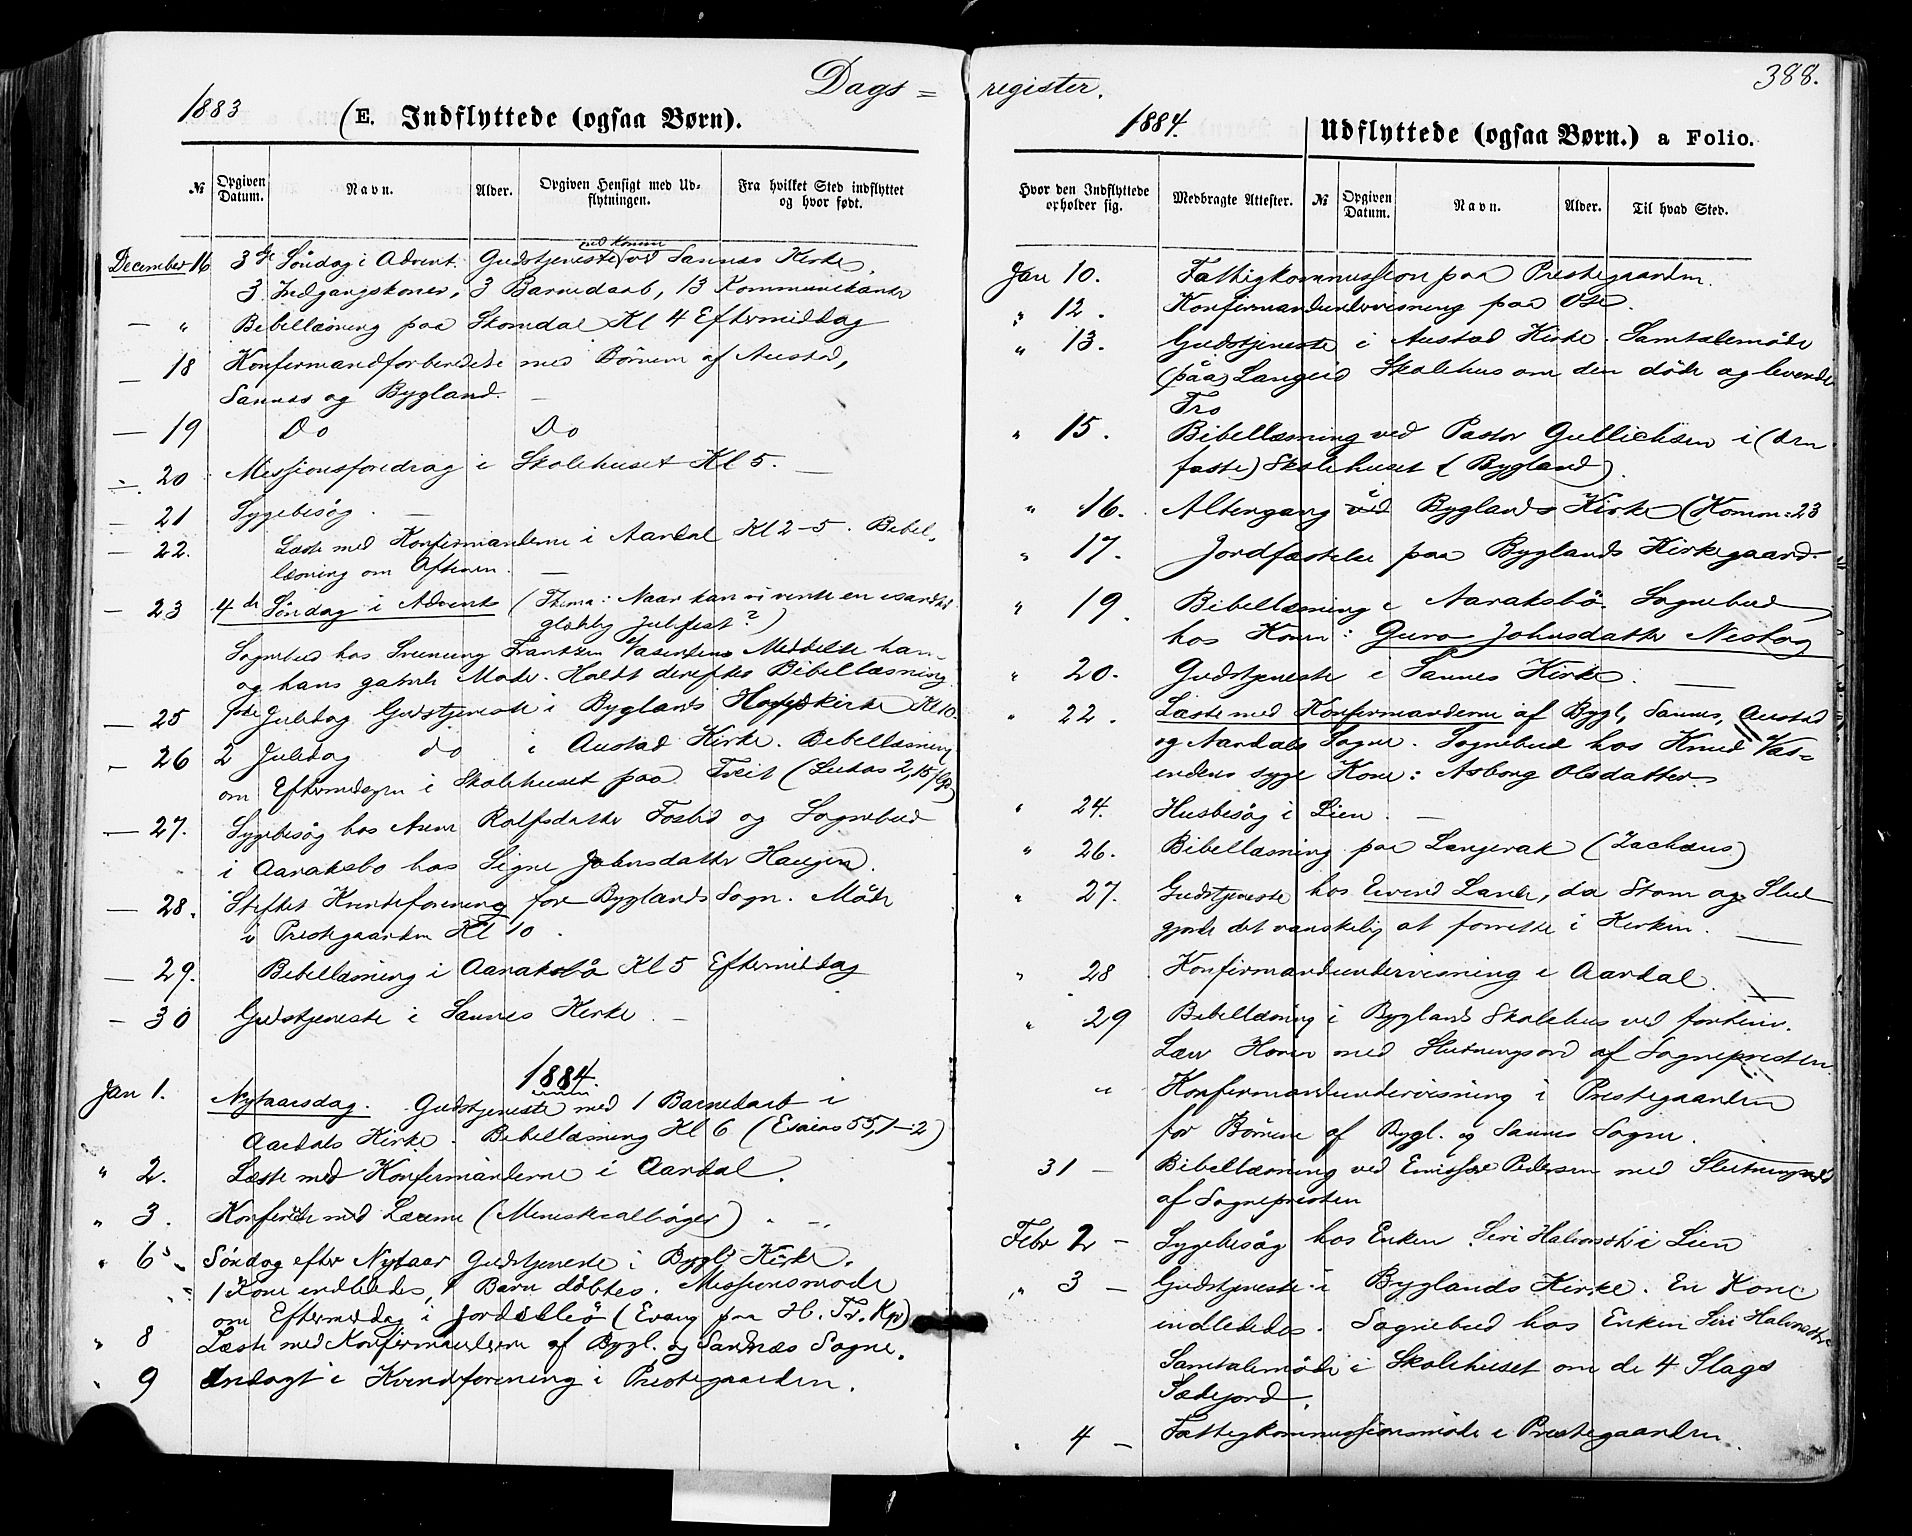 Dags=
1883
(E. Indflyttede (ogsaa Børn).
№ Opgiven Datum. Navn. Alder. Opgiven Hensigt med Ud=flytningen. Fra hvilket Sted indflyttet og hvor født.
December 16 3de Söndag i Advent. Gudstjeneste med Komm ved Sannes Kirke.
3 Indgangskoner, 3 Barnedaab, 13 Kommunikanter
— " Bibellæsning paa Skomdal Kl 4 Eftermiddag
— 18 Konfirmandforberedelse med Börnene af Austad,
Sannes og Bygland. —
— 19 Do Do
— 20 Missionsforedrag i Skolehuset Kl 5. —
— 21 Sygebesög. —
— 22. Læste med Konfirmanderne i Aardal Kl 2-5. Bibel-
læsning om Aftenen. —
— 23 4de Söndag i Advent (Thema: Naar kan vi vente en sand
glædelig Julefest?)
Sognebud hos Sveinung Frantzen Meddelte ham
og hans gamle Moder. Holdt derefter Bibellæsning
— 25 förste Juledag Gudstjeneste i Byglands Hovedkirke Kl 10.
— 26 2 Juledag do i Austad Kirke. Bibellæsning
om Eftermidagen i Skolehuset paa Treit (Lukas 2,15 flg)
— 27. Sygebesög hos Anne Rolfsdatter Fosbö og Sognebud
i Aaraksbo hos Signe Johnsdatter Haugen.
— 28. Stiftet Kvindeforening for Byglands Sogn. Möde
i Prestegaarden Kl 10.
— 29. Bibellæsning i Aaraksbö Kl 5 Eftermiddag
— 30 Gudstjeneste i Sannes Kirke. —
1884.
Jan 1. Nytaarsdag. Gudstjeneste med 1 Barnedaab i
Aardals Kirke. Bibellæsning Kl 6 (Esaias 55,1-2)
" 2. Læste med Konfirmanderne i Aardal.
" 3. Konfererte med Lærerne (Ministerialböger) —
" 6 Söndag efter Nytaar Gudstjeneste i Bygls Kirke.
1 Kone indlededes, 1 Barn döbtes. Missionsmöde
om Eftermiddag i Jordalbö (Evang paa H. Tr. Kg)
" 8 Læste med Konfirmanderne af Bygl. og Sandnæs Sogne.
" 9 Andagt i Kvindeforening i Prestegaarden.
register.
388.
1884.
Udflyttede (ogsaa Børn.) a Folio.
Hvor den Indflyttede opholder sig. Medbragte Attester. № Opgiven Datum. Navn. Alder. Til hvad Sted.
Jan 10. Fattigkommission paa Prestegaarden.
" 12. Konfirmandundervisning paa Ose.
" 13. Gudstjeneste i Austad Kirke. Samtalemöde
(paa) Langeid Skolehus om den döde og levende
Tro
" 15. Bibellæsning ved Pastor Gullichsen i (den
faste) Skolehuset (Bygland)
" 16. Altergang ved i Byglands Kirke (Komm: 23
" 17. Jordfæstelse paa Byglands Kirkegaard.
" 19. Bibellæsning i Aaraksbö. Sognebud
hos Konen: Guro Johnsdatter Nesteg
" 20. Gudstjeneste i Sannes Kirke. —
" 22. Læste med Konfirmanderne af Bygl, Sannes, Austad
og Aardals Sogne. Sognebud hos Knud Vas-
endens syge Kone: Asborg Olsdatter.
" 24. Husbesög i Lien. —
" 26. Bibellæsning paa Langerak (Zachæus)
" 27. Gudstjeneste hos Eivind Lande, da Storm og Slud
gjorde det vanskelig at forrette i Kirken. —
" 28 Konfirmandundervisning i Aardal. —
" 29 Bibellæsning i Byglands Skolehus ved forhenv.
Lærer Hoven med Slutningsord af Sognepresten.
" Konfirmandundervisning i Prestegaarden
for Börnene af Bygl. og Sannes Sogne.
31 — Bibellæsning ved Emissær Pedersen med Slutningsord
af Sognepresten
Febr 2 — Sygebesög hos Enken Siri Halvorsdtr i Lien
" 3 — Gudstjeneste i Byglands Kirke. En Kone
indlededes. Sognebud hos Enken Siri Halvorsdtr
Samtalemöde i Skolehuset om de 4 Slags
Sædejord.
" 4 — Fattigkommissionsmöde i Prestegaarden.